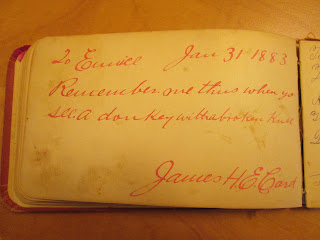 To Jan 31 1883
Remember me thus when yo
see. A donkey with a broken Knee
James H. E. Card